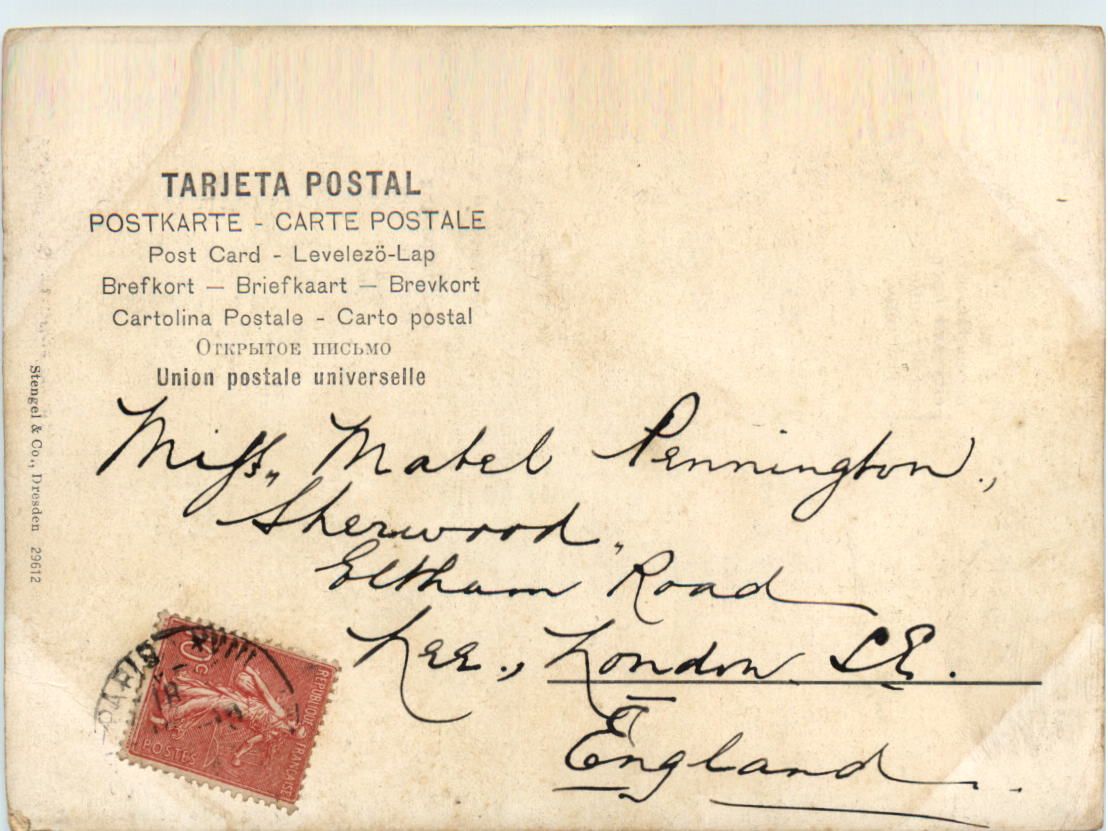 TARJETA POSTAL
POSTKARTE - CARTE POSTALE
Post Card - Levelezö-Lap
Brefkort — Briefkaart — Brevkort
Cartolina Postale - Carto postal
Открытое письмо
Union postale universelle
Stengel & Co., Dresden 29612
Miss,, Mabel Pennington.,
Sherwood,,
Eltham Road
Lee., London. S.E.
England.
PARIS XVIII
10c
POSTES
REPUBLIQUE FRANÇAISE